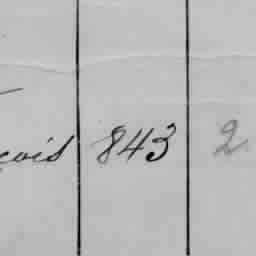 çois 843 2